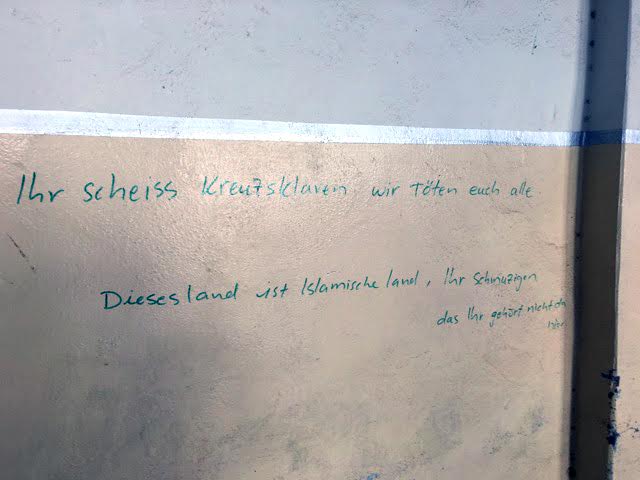 Ihr scheiss Kreuzsklaven, wir Töten euch alle
Dieses land ist Islamische land, Ihr schmuzigen
das Ihr gehört nicht